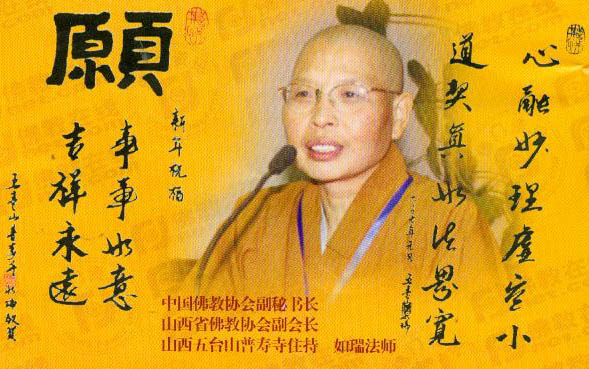 願
新年祝福
事事如意
吉祥永遠
心融妙理虛空小
道契真如法界寬
中国佛教协会副秘书长
山西省佛教协会副会长
山西五台山普寿寺住持 如瑞法师